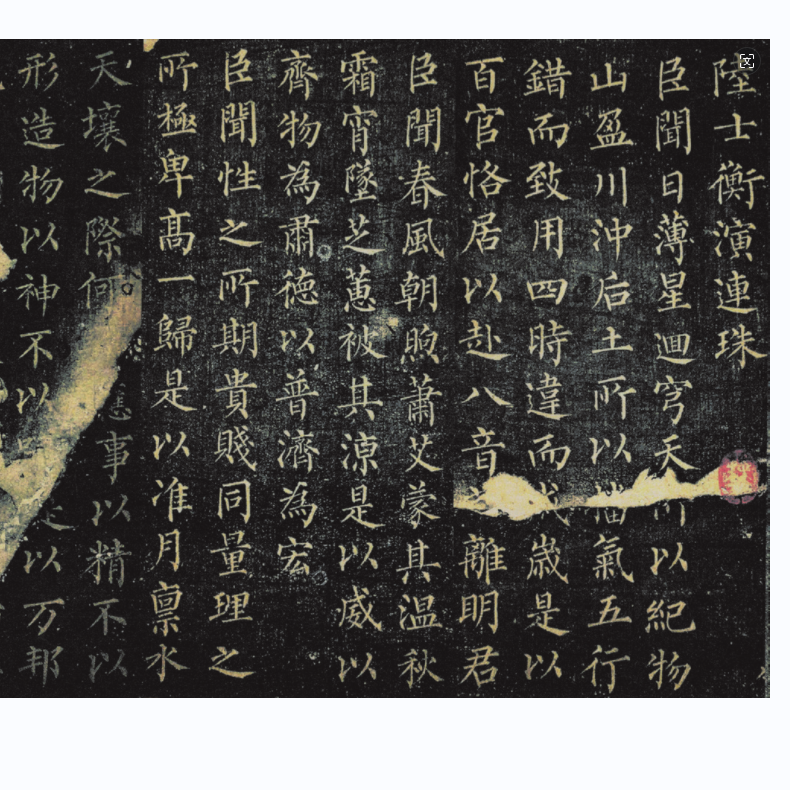 陸士衡演連珠
臣聞日薄星迴穹天所以紀物
山盈川沖后土所以播氣五行
錯而致用四時違而成歲是以
百官恪居以赴八音之離明君
臣聞春風朝煦蕭艾蒙其温秋
霜宵墜芝蕙被其涼是以威以
齊物為肅德以普濟為宏
臣聞性之所期貴賤同量理之
所極卑高一歸是以准月稟水
天壤之際何應事以精不以
形造物以神不以是以万邦